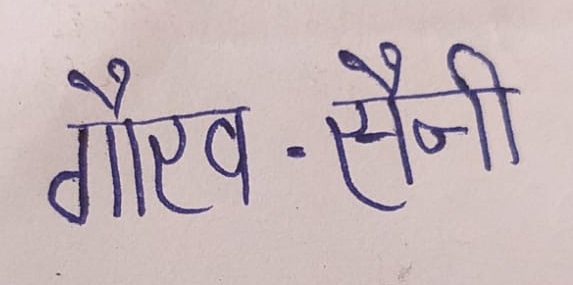 गौरव - सैनी